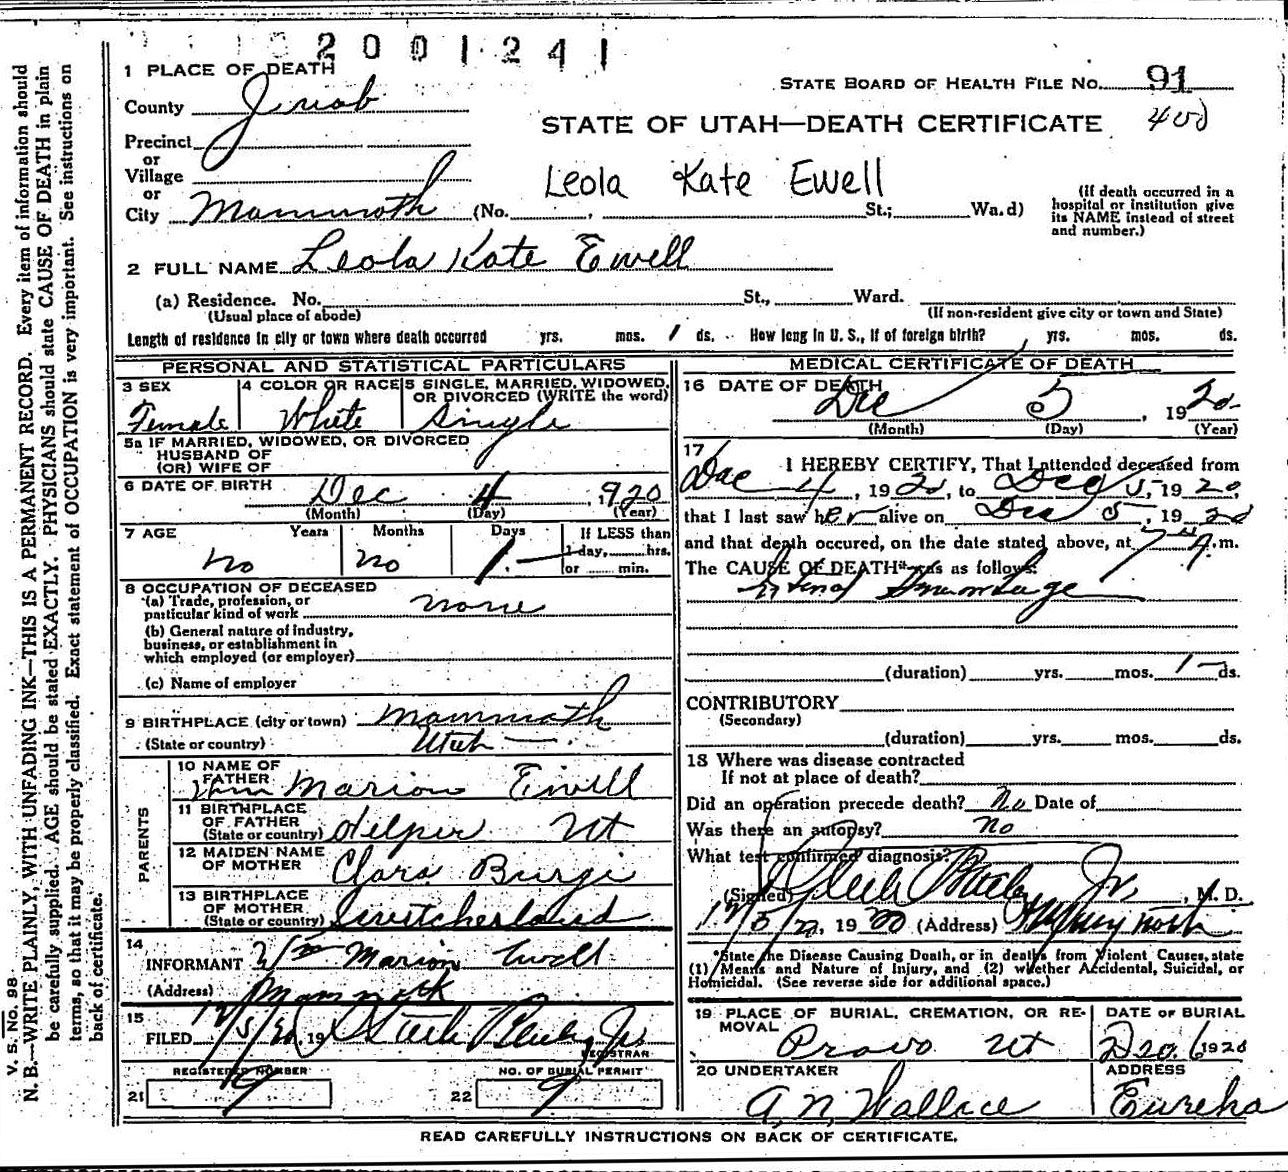 2001241
1 PLACE OF DEATH
STATE BOARD OF HEALTH FILE NO. 91
County Juab
400
STATE OF UTAH—DEATH CERTIFICATE
Precinct
or
Village
or
City Mammoth (No. , St.; Wa.d)
Leola Kate Ewell
(If death occurred in a
hospital or institution give
its NAME instead of street
and number.)
2 FULL NAME Leola Kate Ewell
(a) Residence. No. St., Ward.
(Usual place of abode) (If non-resident give city or town and State)
Length of residence in city or town where death occurred yrs. mos. 1 ds. How long in U. S., if of foreign birth? yrs. mos. ds.
PERSONAL AND STATISTICAL PARTICULARS
3 SEX
Female
4 COLOR OR RACE
White
5 SINGLE, MARRIED, WIDOWED,
OR DIVORCED (WRITE the word)
Single
5a IF MARRIED, WIDOWED, OR DIVORCED
HUSBAND OF
(OR) WIFE OF
6 DATE OF BIRTH Dec 4 1920
(Month) (Day) (Year)
7 AGE Years Months Days If LESS than
no no 1 1 day, hrs.
or min.
8 OCCUPATION OF DECEASED
(a) Trade, profession, or
particular kind of work none
(b) General nature of industry,
business, or establishment in
which employed (or employer)
(c) Name of employer
9 BIRTHPLACE (city or town) Mammoth
(State or country) Utah
PARENTS
10 NAME OF
FATHER Wm Marion Ewell
11 BIRTHPLACE
OF FATHER
(State or country) Helper Ut
12 MAIDEN NAME
OF MOTHER Clara Burgi
13 BIRTHPLACE
OF MOTHER
(State or country) Switcherland
14
INFORMANT Wm Marion Ewell
(Address) Mammoth
15
FILED 12/5/20 19
REGISTRAR
REGISTERED NUMBER
21 9
NO. OF BURIAL PERMIT
22 9
MEDICAL CERTIFICATE OF DEATH
16 DATE OF DEATH
Dec 5, 1920
(Month) (Day) (Year)
17
I HEREBY CERTIFY, That I attended deceased from
Dec 4, 1920, to Dec 5, 1920,
that I last saw her alive on Dec 5, 1920
and that death occured, on the date stated above, at 7 A.m.
The CAUSE OF DEATH* was as follows:
(duration) yrs. mos. 1 ds.
CONTRIBUTORY
(Secondary)
(duration) yrs. mos. ds.
18 Where was disease contracted
If not at place of death?
Did an operation precede death? No Date of
Was there an autopsy? no
What test confirmed diagnosis?
(Signed) Jr, M. D.
12/5/20, 1920 (Address)
*State the Disease Causing Death, or in deaths from Violent Causes, state
(1) Means and Nature of Injury, and (2) whether Accidental, Suicidal, or
Homicidal. (See reverse side for additional space.)
19 PLACE OF BURIAL, CREMATION, OR RE-
MOVAL
Provo Ut
DATE OF BURIAL
Dec. 6 1920
20 UNDERTAKER
A. N. Wallace
ADDRESS
Eureka
READ CAREFULLY INSTRUCTIONS ON BACK OF CERTIFICATE.
V. S. No. 98
N. B.—WRITE PLAINLY, WITH UNFADING INK—THIS IS A PERMANENT RECORD. Every item of information should
be carefully supplied. AGE should be stated EXACTLY. PHYSICIANS should state CAUSE OF DEATH in plain
terms, so that it may be properly classified. Exact statement of OCCUPATION is very important. See instructions on
back of certificate.